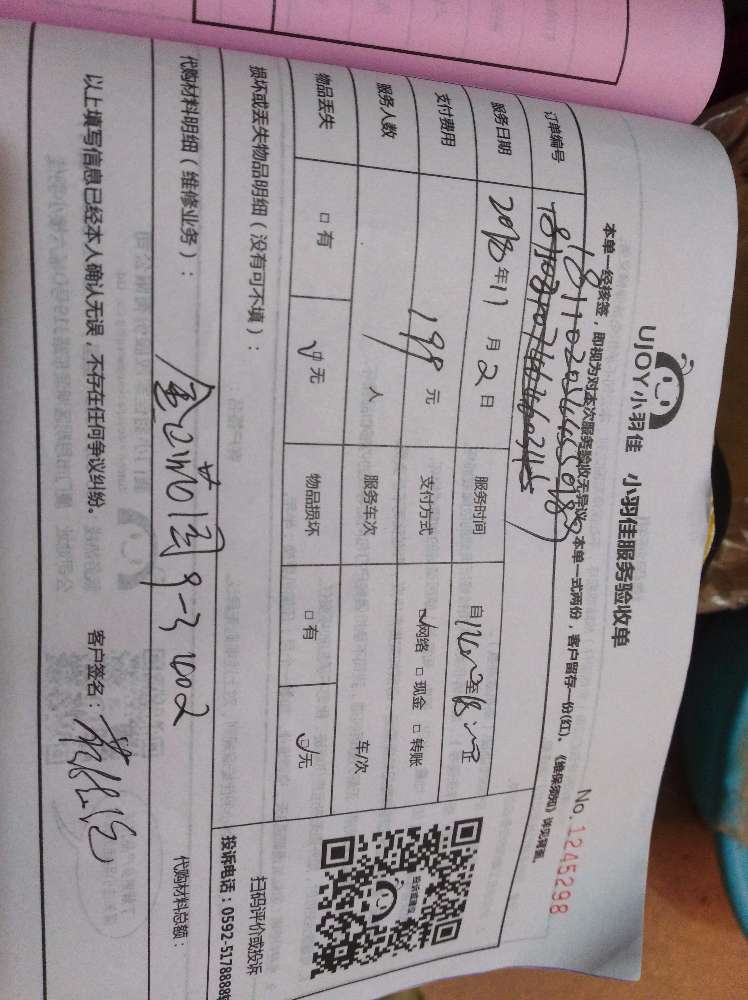 UJOY小羽佳 小羽佳服务验收单
No.1245298
本单一经核签，即视为对本次服务验收无异议。本单一式两份，客户留存一份(红)。《维保须知》详见背面。
订单编号
服务日期 2018年11月2日 服务时间 自 至 止
支付费用 199元 支付方式 ☑网络 □现金 □转账
服务人数 人 服务车次 车/次
物品丢失 □有 ☑无 物品损坏 □有 ☑无
损坏或丢失物品明细（没有可不填）：
投诉或建议
扫码评价或投诉
投诉电话：0592-5178888
代购材料明细（维修业务）： 代购材料总额：
9-3 1002
以上填写信息已经本人确认无误，不存在任何争议纠纷。 客户签名：